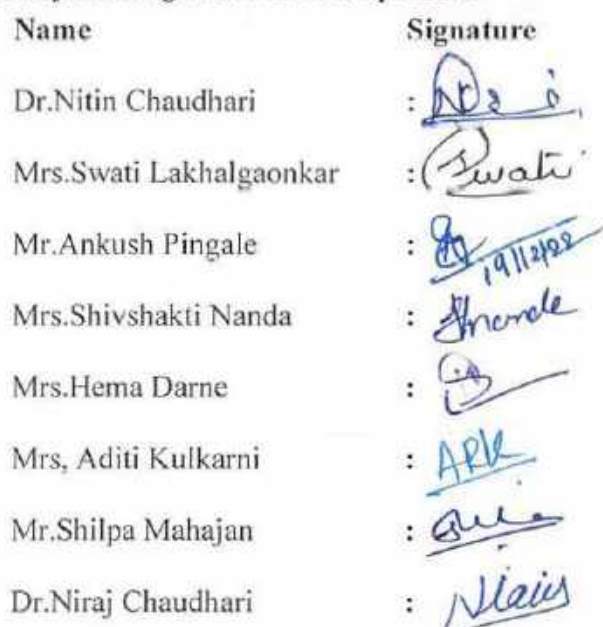 Name Signature
Dr.Nitin Chaudhari :
Mrs.Swati Lakhalgaonkar : Swati
Mr.Ankush Pingale : 19/12/22
Mrs.Shivshakti Nanda :
Mrs.Hema Darne :
Mrs, Aditi Kulkarni : ARK
Mr.Shilpa Mahajan :
Dr.Niraj Chaudhari :